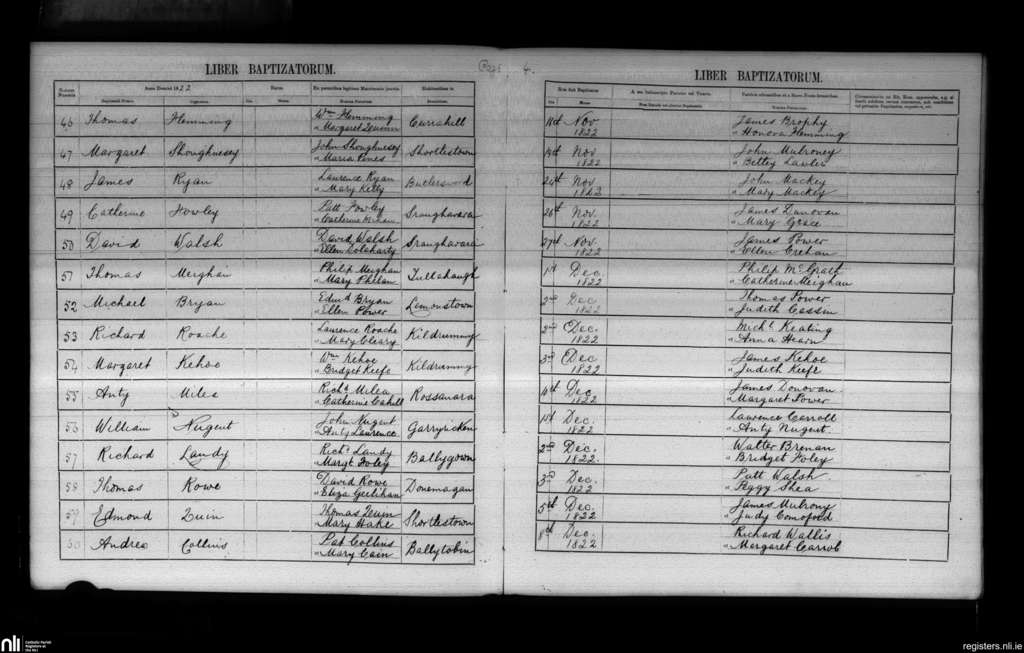 LIBER BAPTIZATORUM.
Anno Domini 1822
46 Thomas Hemming Wm Hemming Currahill
" Margaret Quinn
47 Margaret Shoughnesey John Shoughnesey Shortlestown
" Maria
48 James Ryan Laurence Ryan Butlerswood
" Mary Kelly
49 Catherine Fowley Patt Fowley Sraughavara
" Catherine
50 David Walsh David Walsh Sraughavara
" Ellen Dolaharty
51 Thomas Meighan Philip Meighan Tullahaugh
" Mary Phelan
52 Michael Bryan Edmd Bryan Lemonstown
" Ellen Power
53 Richard Roache Laurence Roache Kildrummy
" Mary Cleary
54 Margaret Kehoe Wm Kehoe Kildrummy
" Bridget Keefe
55 Anty Milea Richd Milea Rossanara
" Catherine Cahill
56 William Nugent John Nugent Garryricken
" Anty Laurence
57 Richard Landy Richd Landy Ballygown
" Margt Foley
58 Thomas Rowe David Rowe Donemagan
" Eliza Geelihan
59 Edmond Quin Thomas Quin Shortlestown
" Mary Hake
60 Andreo Collins Pat Collins Ballytobin
" Mary Cain
4.
LIBER BAPTIZATORUM.
Nov James Brophy
1822 " Honora Hemming
Nov John Mulroney
1822 " Betty Lawler
24th Nov John Mackey
1822 " Mary Mackey
26th Nov. James Donovan
1822 " Mary Grace
27th Nov. James Power
1822 " Ellen Crehan
1st Dec. Philip McGrath
1822 " Catherine Meighan
2nd Dec Thomas Power
1822 " Judith Cassin
2nd Dec. Michl Keating
1822 " Anna Hearn
3rd Dec James Kehoe
1822 " Judith Keefe
Dec. James Donovan
1822 " Margaret Power
1st Dec. Lawrence Carroll
1822 " Anty Nugent
2nd Dec. Walter Brenan
1822. " Bridget Foley
3rd Dec. Patt Walsh
1822 " Peggy Shea
5th Dec. James Mulrony
1822 " Judy Comoford
8th Dec. Richard Wallis
1822 " Margaret Carrol
nli Catholic Parish
Registers at
the NLI
registers.nli.ie